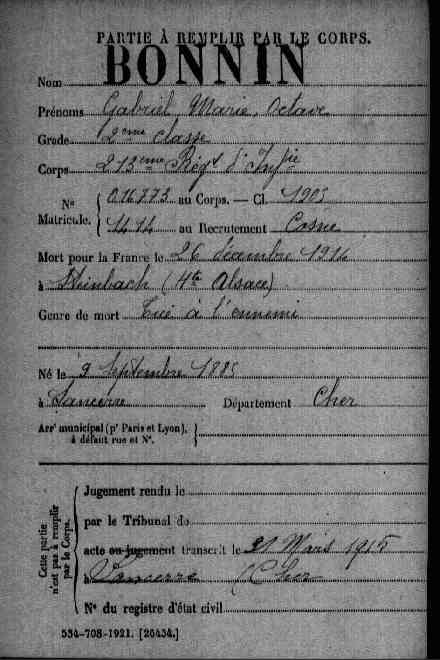 PARTIE À REMPLIR PAR LE CORPS.
Nom BONNIN
Prénoms Gabriel Marie, Octave
Grade 2eme classe
Corps 213eme Régt d'Infie
No Matricule. { 016773 au Corps. — Cl. 1905
1414 au Recrutement Cosne
Mort pour la France le 26 décembre 1914
à Steinbach (Hte Alsace)
Genre de mort Tué à l'ennemi
Né le 9 Septembre 1885
à Sancerre Département Cher
Arrt municipal (pr Paris et Lyon),
à défaut rue et No.
Cette partie n'est pas à remplir par le Corps.
Jugement rendu le
par le Tribunal de
acte ou jugement transcrit le 31 Mars 1915
à Sancerre (Cher
No du registre d'état civil
534-708-1921. [26434.]